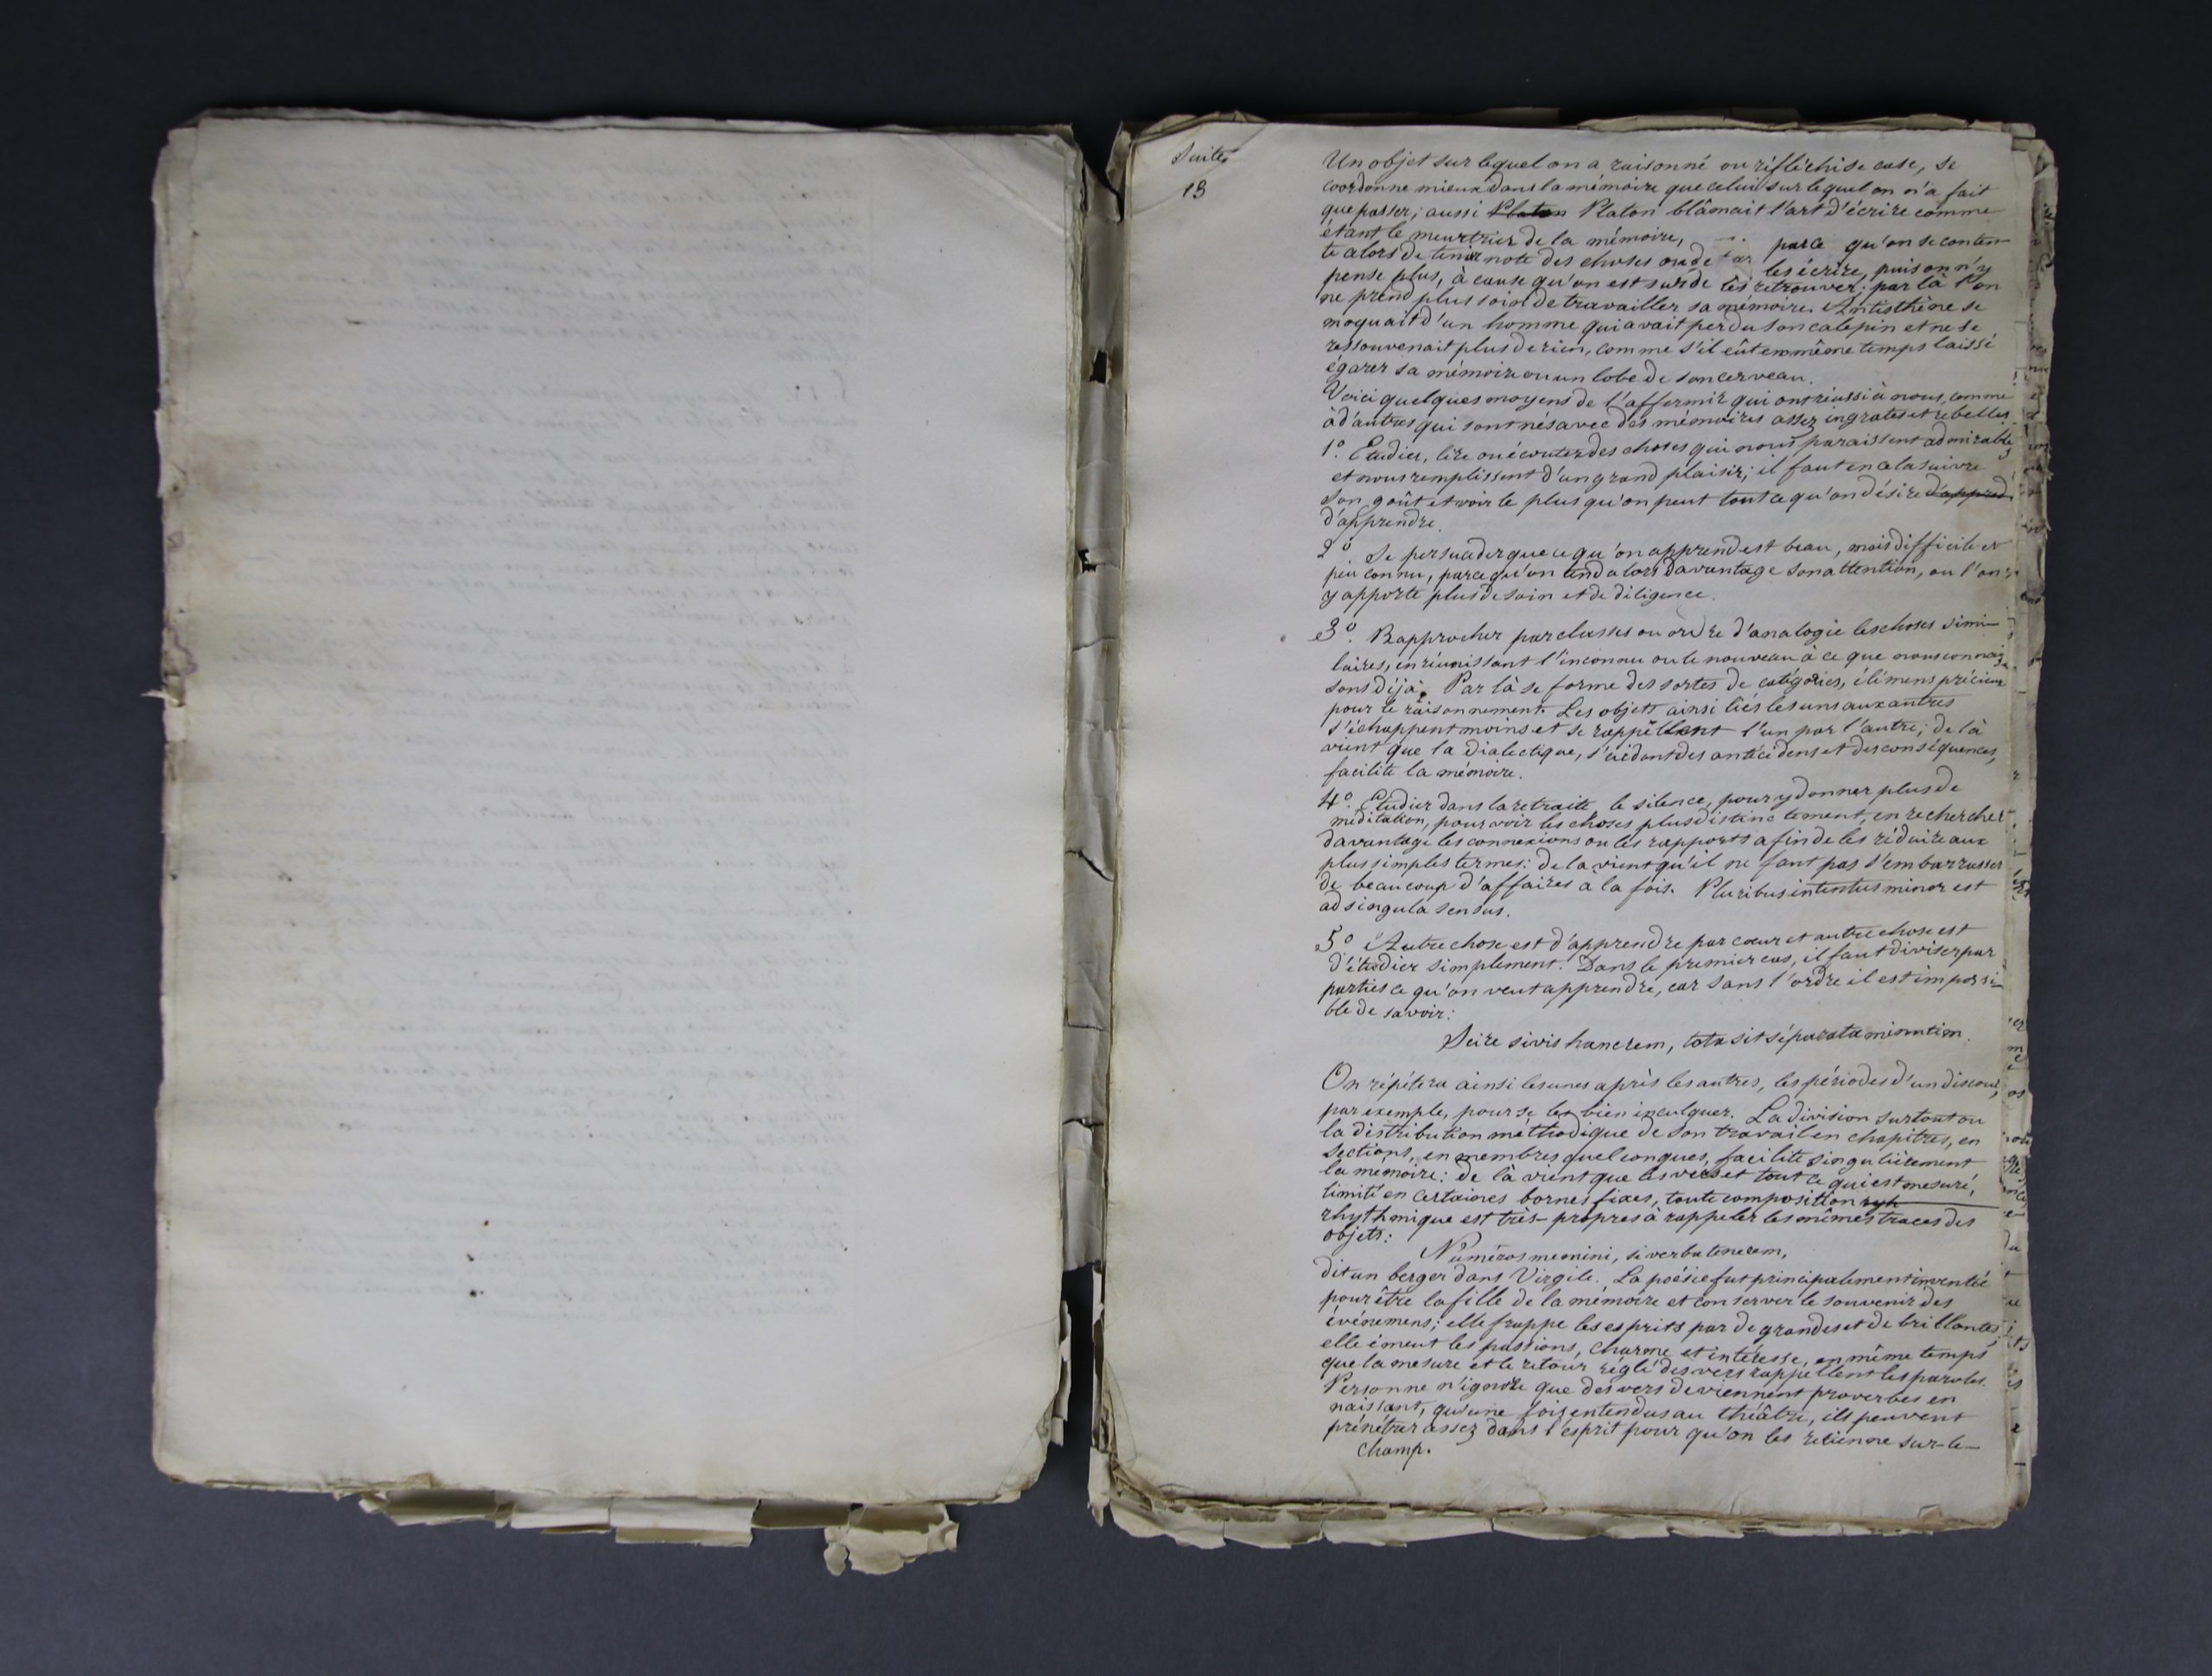 Suite
13
Un objet sur lequel on a raisonné ou réfléchi se case, se
coordonne mieux dans la mémoire que celui sur lequel on n'a fait
que passer; aussi Platon Platon blâmait l'art d'écrire comme
étant le meurtrier de la mémoire, parce qu'on se conten-
te alors de tenir note des choses ou de les écrire, puis on n'y
pense plus, à cause qu'on est sûr de les retrouver; par là l'on
ne prend plus soin de travailler sa mémoire. Antisthène se
moquait d'un homme qui avait perdu son calepin et ne se
ressouvenait plus de rien, comme s'il eût en même temps laissé
égarer sa mémoire ou un lobe de son cerveau.
Voici quelques moyens de l'affermir qui ont réussi à nous, comme
à d'autres qui sont nés avec des mémoires assez ingrates et rebelles
1.° Etudier, lire ou écouter des choses qui nous paraissent admirables
et nous remplissent d'un grand plaisir; il faut en cela suivre
son goût et voir le plus qu'on peut tout ce qu'on désire d'apprend
d'apprendre.
2° Se persuader que ce qu'on apprend est beau, mais difficile et
peu connu, parce qu'on tend alors davantage son attention, ou l'on
y apporte plus de soin et de diligence.
3°. Rapprocher par classes ou ordre d'analogie les choses simi-
laires, en réunissant l'inconnu ou le nouveau à ce que nous connais
sons déjà. Par là se forme des sortes de catégories, élémens précieux
pour le raisonnement. Les objets ainsi liés les uns aux autres
s'échappent moins et se rappellent l'un par l'autre; de là
vient que la dialectique, s'aidant des antécédens et des conséquences,
facilite la mémoire.
4°. Etudier dans la retraite, le silence, pour y donner plus de
méditation, pour voir les choses plus distinctement, en rechercher
davantage les connexions ou les rapports afin de les réduire aux
plus simples termes: de la vient qu'il ne faut pas s'embarrasser
de beaucoup d'affaires à la fois. Pluribus intentus minor est
ad singula sensus.
5° Autre chose est d'apprendre par cœur et autre chose est
d'étudier simplement. Dans le premier cas, il faut diviser par
parties ce qu'on veut apprendre, car sans l'ordre il est impossi-
ble de savoir:
Scire sivis hanc rem, tota sit séparata minutim.
On répétera ainsi les unes après les autres, les périodes d'un discours,
par exemple, pour se les bien inculquer. La division surtout ou
la distribution méthodique de son travail en chapitres, en
sections, en membres quelconques, facilite singulièrement
la mémoire: de là vient que les vers et tout ce qui est mesuré,
limité en certaines bornes fixes, toute composition ryh
rhythmique est très-propres à rappeler les mêmes traces des
objets:
Numéros memini, si verba tenerem,
dit un berger dans Virgile. La poésie fut principalement inventée
pour être la fille de la mémoire et conserver le souvenir des
événemens; elle frappe les esprits par de grandes et de brillantes,
elle émeut les passions, charme et intéresse, en même temps
que la mesure et le retour réglé des vers rappellent les paroles.
Personne n'ignore que des vers deviennent proverbes en
naissant, qu'une fois entendus au théâtre, ils peuvent
prénétrer assez dans l'esprit pour qu'on les retienne sur-le-
champ.